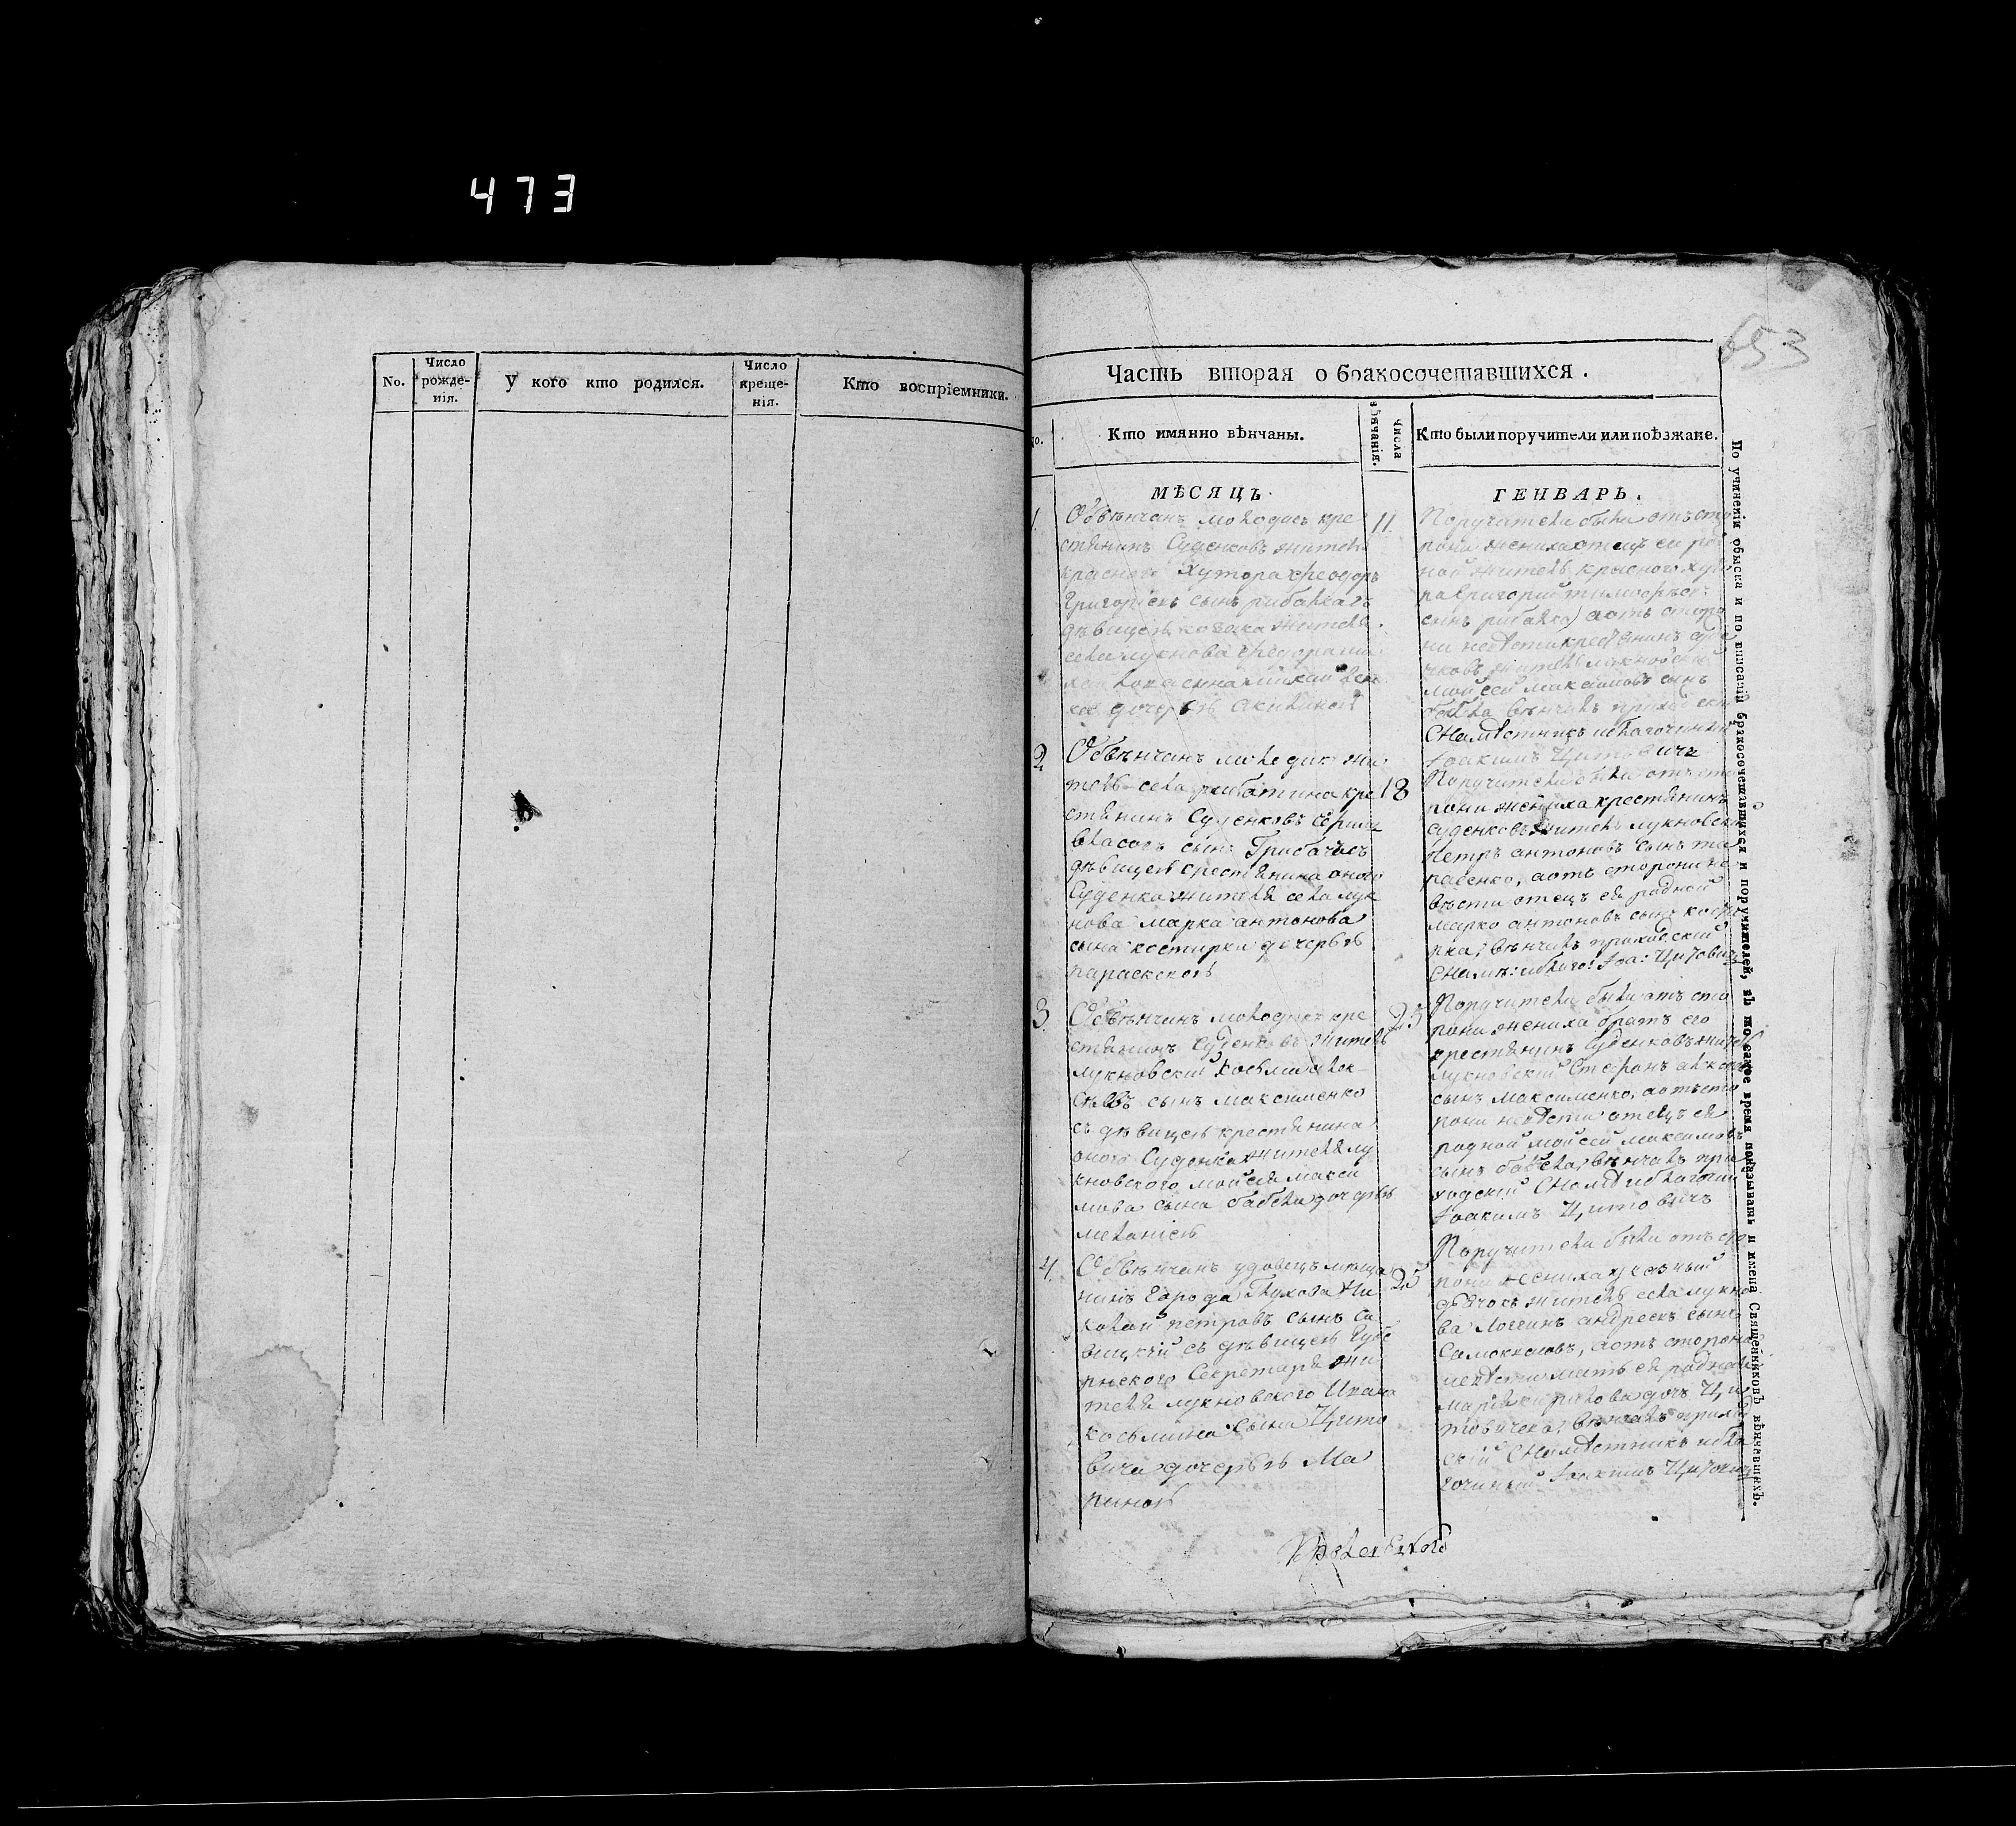 473
653
No.
Число рожде-нія.
У кого кто родился.
Число креще-нія.
Кто воспріемники.
Часть вторая о бракосочетавшихся.
Кто имянно вѣнчаны.
Числа вѣнчанія.
Кто были поручители или поѣзжане.
МѢСЯЦЪ
ГЕНВАРЬ.
1.
Обвѣнчанъ молодикъ кре
стянинъ Суденковъ житель
красного хутора Феодоръ
Григоріевъ сынъ рибалка съ
дѣвицею козака жителя
села лукнова
дочерью Акилиною
11.
Поручители были отъ сто
рони жениха отецъ его ро
ной житель красного хуто
ра Григорій тимофѣевъ
сынъ рибалка, а отъ сторо
ни невѣсти крестянинъ суде
нковъ житель лукновскій
мойсей максимовъ сынъ
бабека вѣнчалъ приходскій
Намѣстникъ и благочинный
Іоакимъ Цитовичъ
2
Обвѣнчанъ молодикъ жи
тель села риботина кре
стянинъ Суденковъ
власовъ сынъ Грибачъ съ
дѣвицею крестянина оного
Суденка жителя села лук
нова марка антонова
сына костирки дочерью
параскевою
18
Поручители были отъ сто
рони жениха крестянинъ
суденковъ житель лукновскій
петръ антоновъ сынъ та
расенко, а отъ сторони не
вѣсти отецъ ея родной
марко антоновъ сынъ кости
рка, вѣнчалъ приходскій
Намѣ: и благо: Іоа: Цитовичъ
3.
Обвѣнчанъ молодикъ кре
стянинъ Суденковъ житель
лукновскій Козма алек
сѣевъ сынъ максименко
съ дѣвицею крестянина
оного Суденка жителя лу
кновского мойсея макси
мова сына бабеки дочерью
меланіею
25
Поручители были отъ сто
рони жениха братъ его
крестянинъ Суденковъ житель
лукновскій Стефанъ алексѣевъ
сынъ максименко, а отъ сто
рони невѣсти отецъ ея
родной мойсей максимовъ
сынъ бабека, вѣнчалъ при
ходскій Намѣ и благочин
Іоакимъ Цитовичъ
4.
Обвѣнчанъ удовецъ мѣща
нинъ города Глухова Ни
колай петровъ сынъ Са
вицкій съ дѣвицею Губе
рнского Секретаря жи
теля лукновского Ивана
козмина сына Цито
вича дочерью Ма
риною
25
Поручители были отъ сто
рони жениха указный
дьячокъ житель села лукно
ва Логгинъ андреевъ сынъ
Самокишовъ, а отъ сторони
невѣсти мать ея родная
марія кирилова дочь Ци
товичева, вѣнчалъ приход
скій Намѣстникъ и бла
гочинный Іоакимъ Цитовичъ
По учиненіи обыска и по вписаніи бракосочетавшихся и поручителей, въ то самое время показывать и имена Священниковъ вѣнчавшихъ.